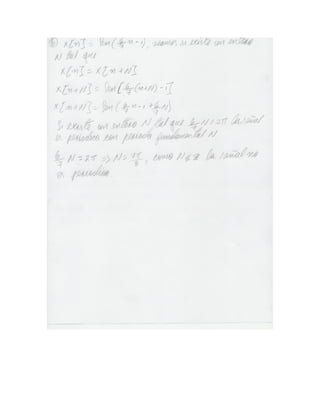 x[n] = sen( n - 1), veamos si existe un entero
N tal que
x[n] = x[n+N]
x[n+N] = sen[ (n+N) - 1]
x[n+N] = sen( n - 1 + N)
Si existe un entero N tal que N = 2π la señal
es periodica con periodo fundamental N
N = 2π => N = , como N la señal no
es periodica